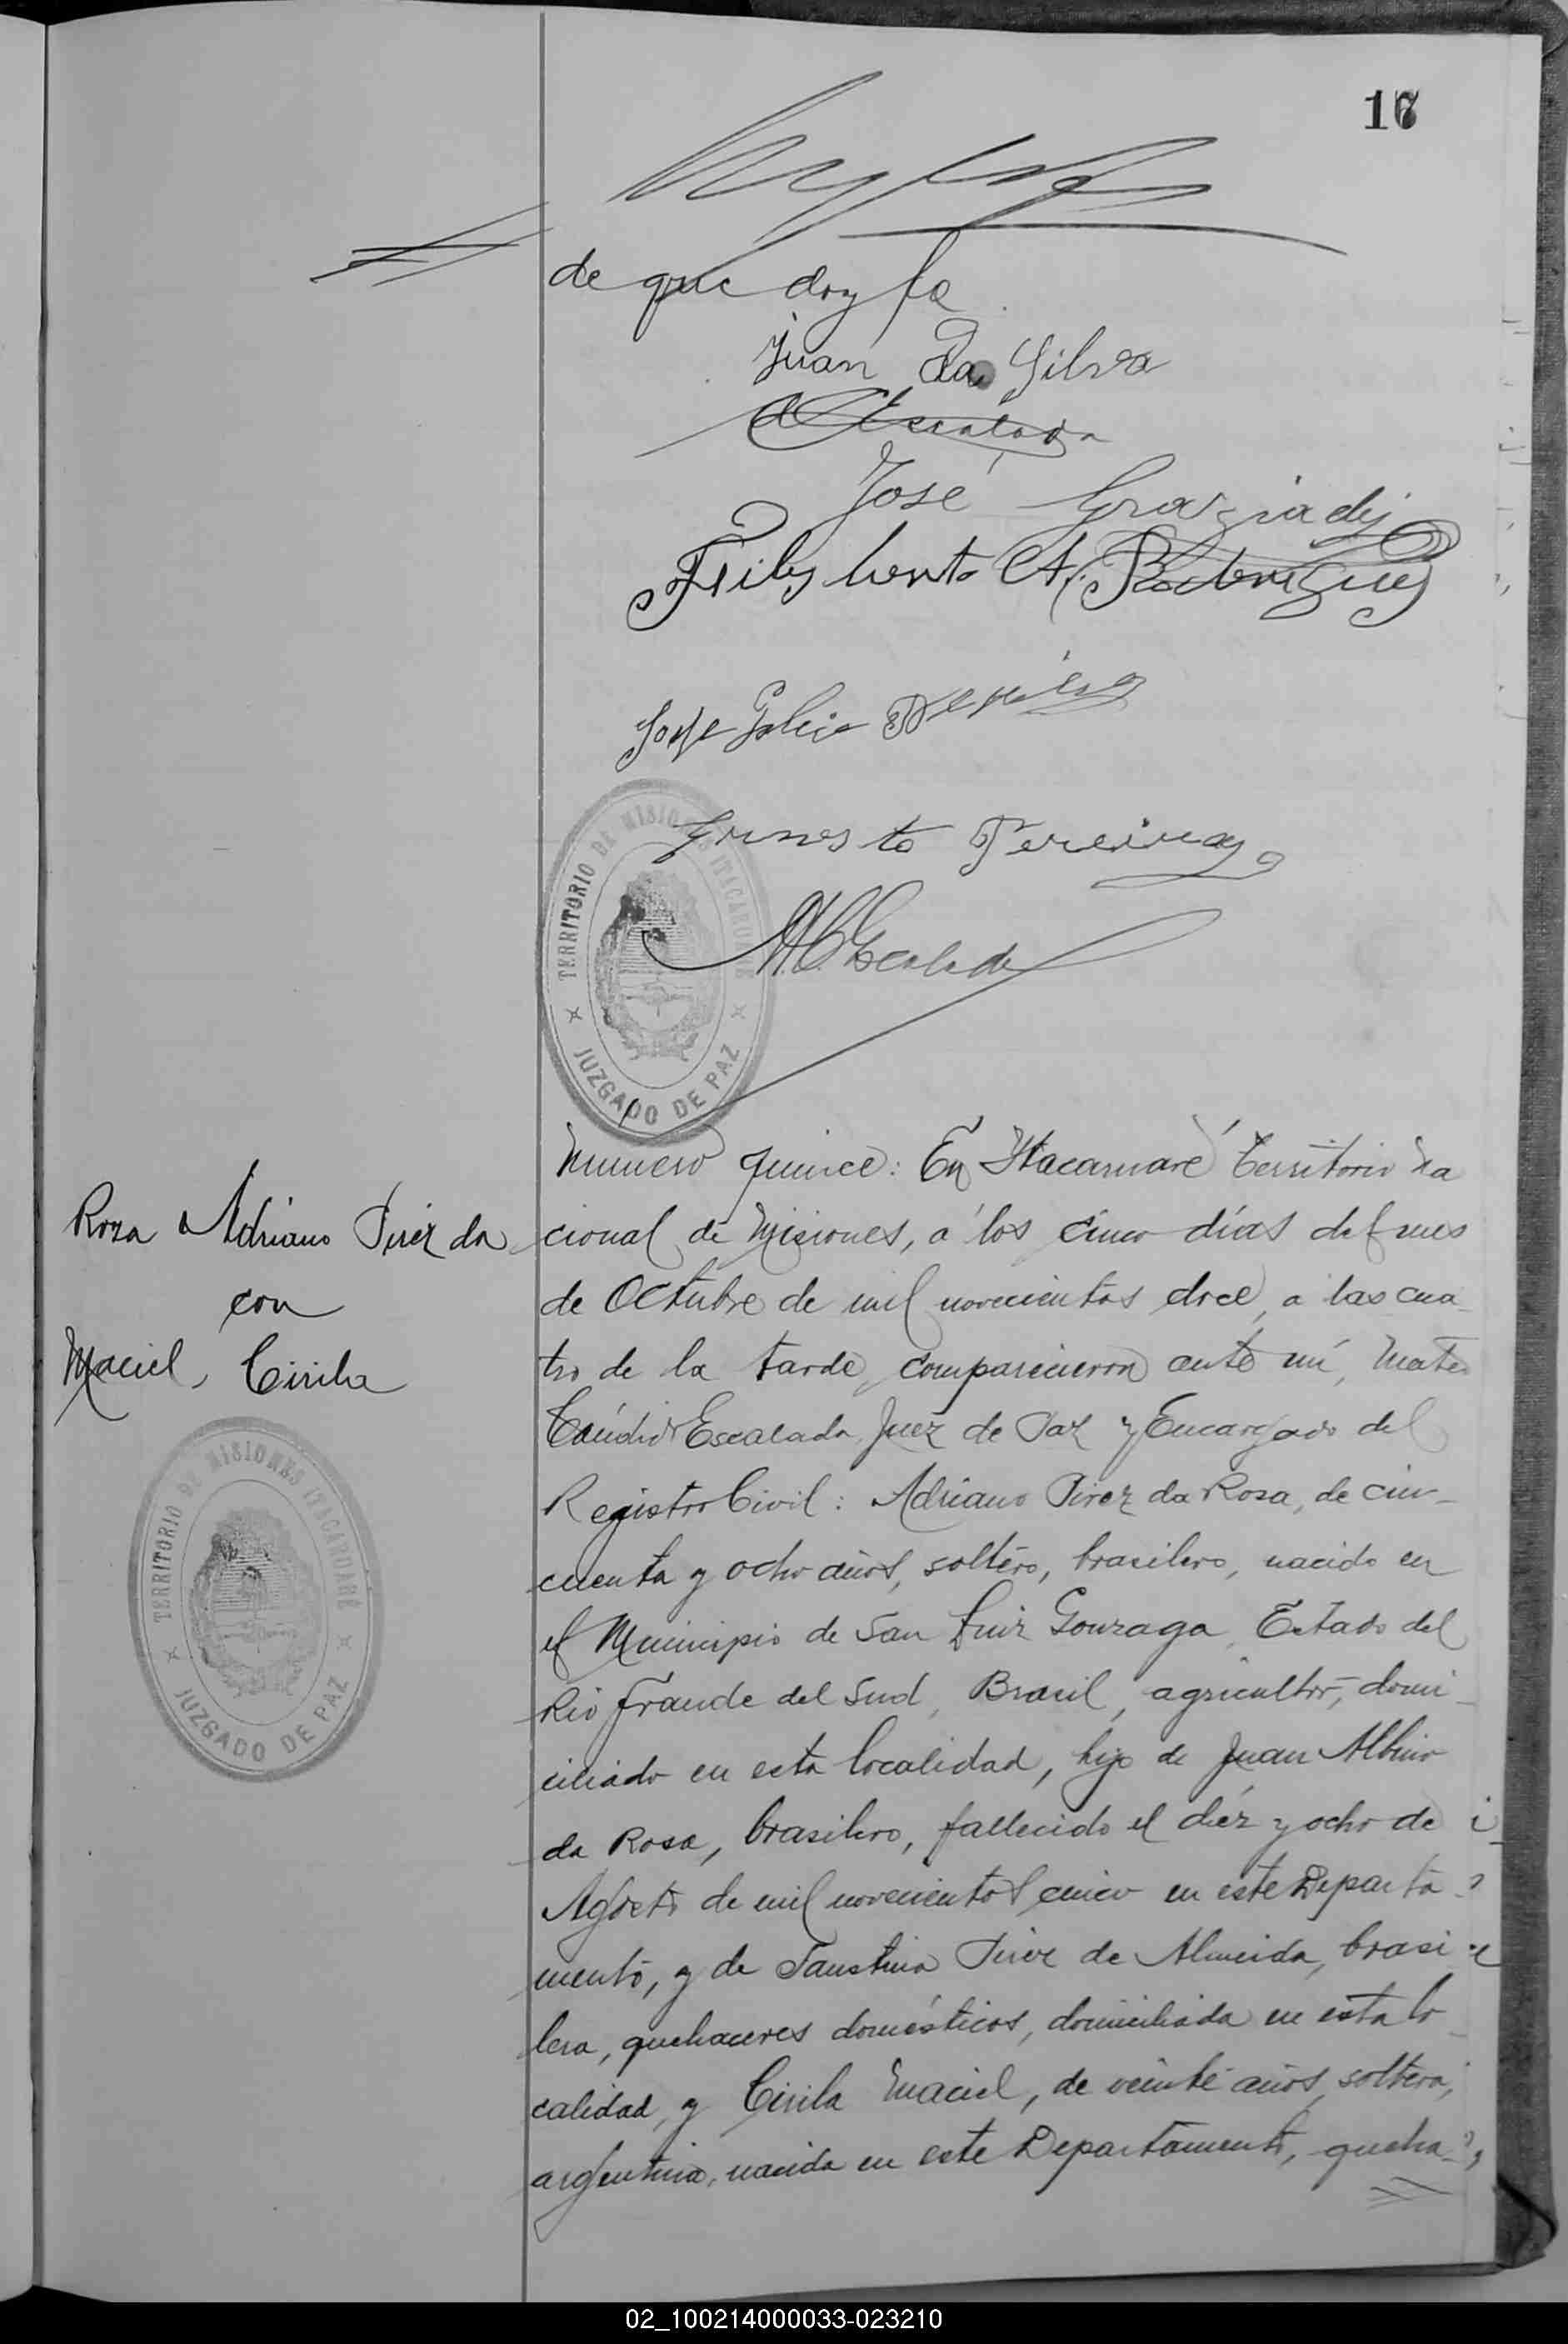 16
de que doy fe
Juan da Silva
Escalada
José
Filiberto A. Rodriguez
José
Ernesto Pereira
TERRITORIO DE MISIONES ITACARUARÉ
JUZGADO DE PAZ
M. C. Escalada
Roza Adriano Pirez da
con
Maciel, Cirila
TERRITORIO DE MISIONES ITACARUARÉ
JUZGADO DE PAZ
Numero quince: En Itacaruaré territorio Na
cional de Misiones, á los cinco días del mes
de Octubre de mil novecientos doce, a las cua
tro de la tarde, comparecieron ante mí, Mateo
Cándido Escalada Juez de Paz y Encargado del
Registro Civil: Adriano Pirez da Rosa, de cin-
cuenta y ocho años, soltero, brasilero, nacido en
el Municipio de San Luiz Gonzaga, Estado del
Rio Grande del Sud, Brasil, agricultor, domi-
ciliado en esta localidad, hijo de Juan Albino
da Rosa, brasilero, fallecido el diéz y ocho de
Agosto de mil novecientos cinco en este Departa
mento, y de Faustina Pirez de Almeida, brasi
lera, quehaceres domésticos, domiciliada en esta lo-
calidad, y Cirila Maciel, de veinte años, soltera,
argentina, nacida en este Departamento, queha-
02_100214000033-023210